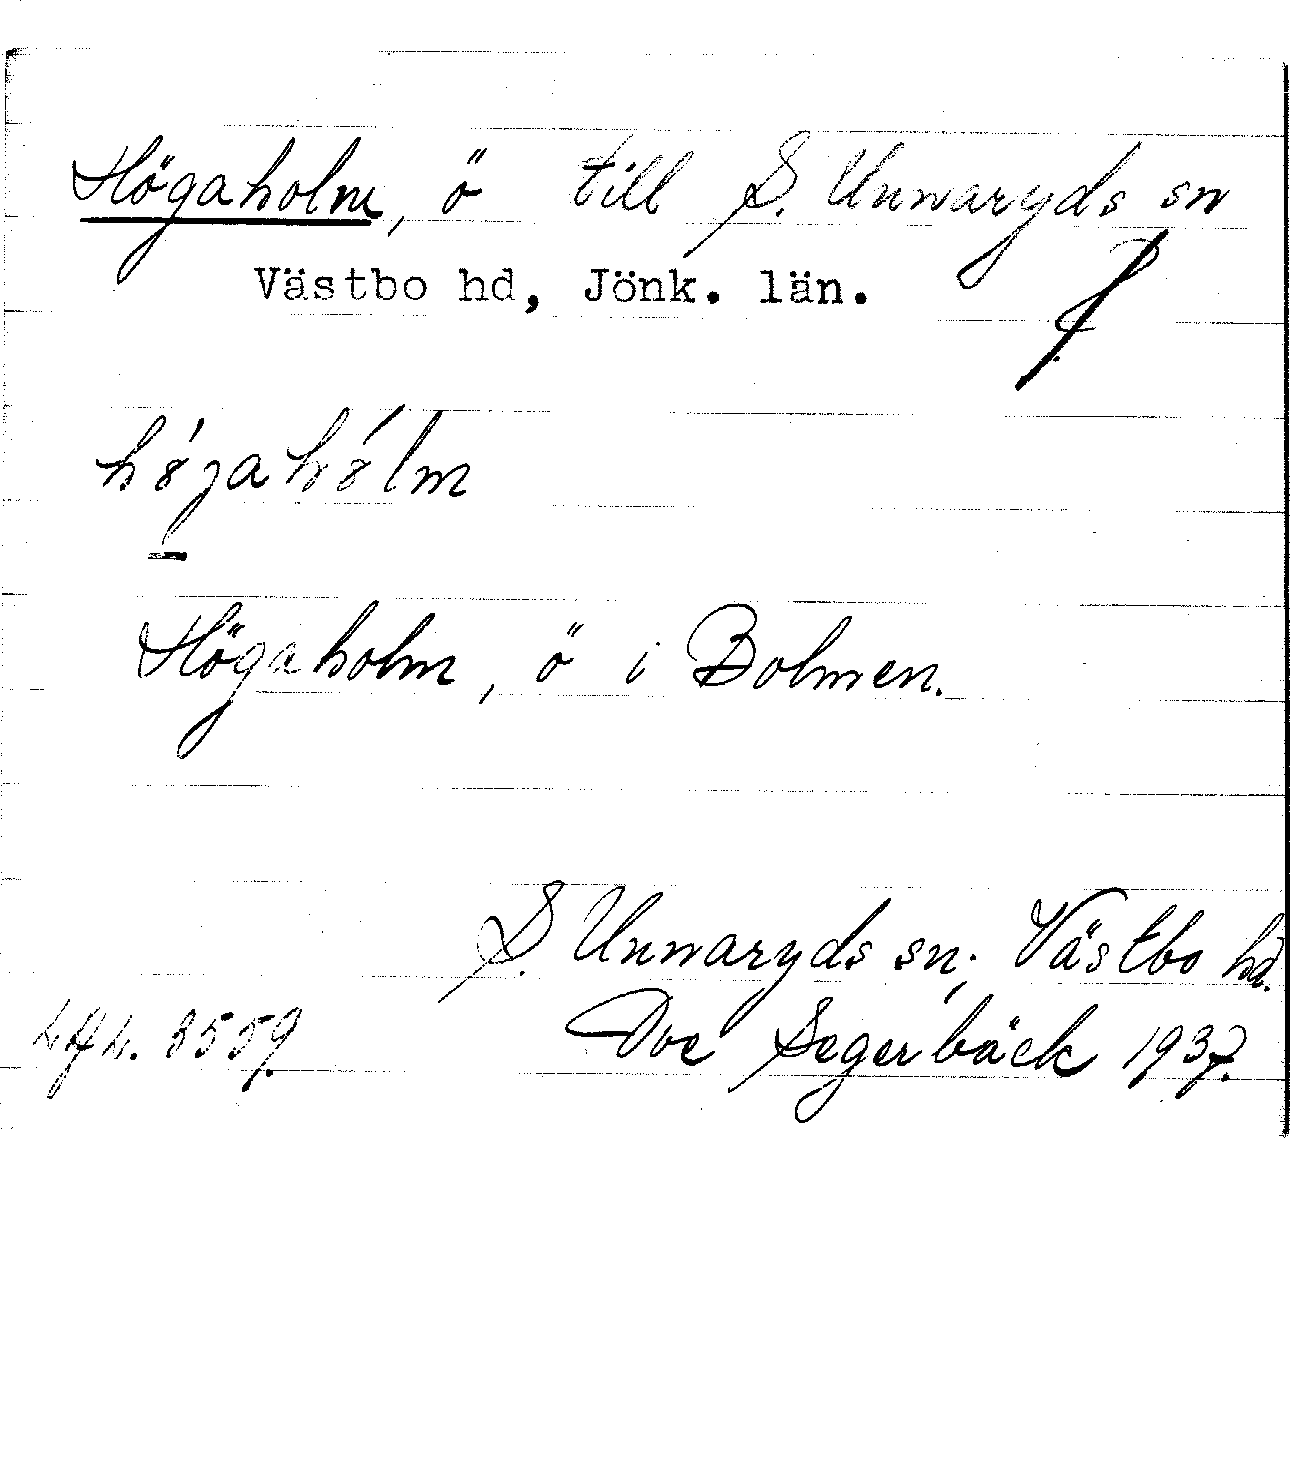 Högaholm, ö till S. Unnaryds sn
Västbo hd, Jönk. län.
Högaholm, ö i Bolmen.
S. Unnaryds sn; Västbo hd.
3559. Segerbäck 1937.